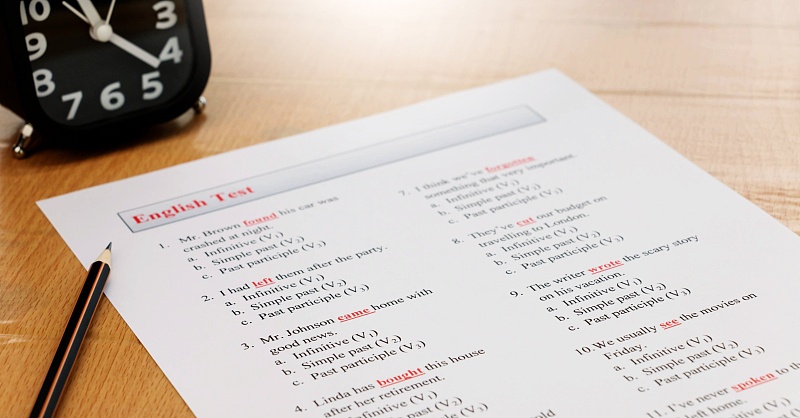 10
9
8
7
6
5
4
3
English Test
1. Mr. Brown found his car was
crashed at night.
a. Infinitive (V1)
b. Simple past (V2)
c. Past participle (V3)
2. I had left them after the party.
a. Infinitive (V1)
b. Simple past (V2)
c. Past participle (V3)
3. Mr. Johnson came home with
good news.
a. Infinitive (V1)
b. Simple past (V2)
c. Past participle (V3)
4. Linda has bought this house
after her retirement.
Infinitive (V1)
Past (V2)
7. I think we've forgotten
something that very important.
a. Infinitive (V1)
b. Simple past (V2)
c. Past participle (V3)
8. They've cut our budget on
travelling to London.
a. Infinitive (V1)
b. Simple past (V2)
c. Past participle (V3)
9. The writer wrote the scary story
on his vacation.
a. Infinitive (V1)
b. Simple past (V2)
c. Past participle (V3)
10. We usually see the movies on
Friday.
a. Infinitive (V1)
b. Simple past (V2)
c. Past participle (V3)
I've never spoken to